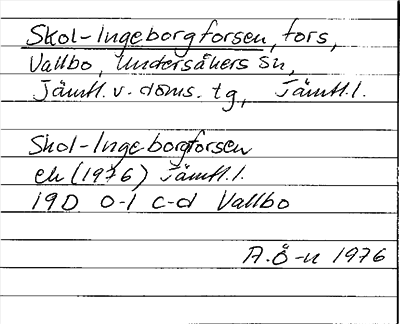 Skol-Ingeborgforsen, fors,
Vallbo, Undersåkers sn,
Jämtl. v. doms. tg, Jämtl. l.
Skol-Ingeborgforsen
ek (1976) Jämtl. l.
19D 0-1 c-d Vallbo
A.Ö-n 1976